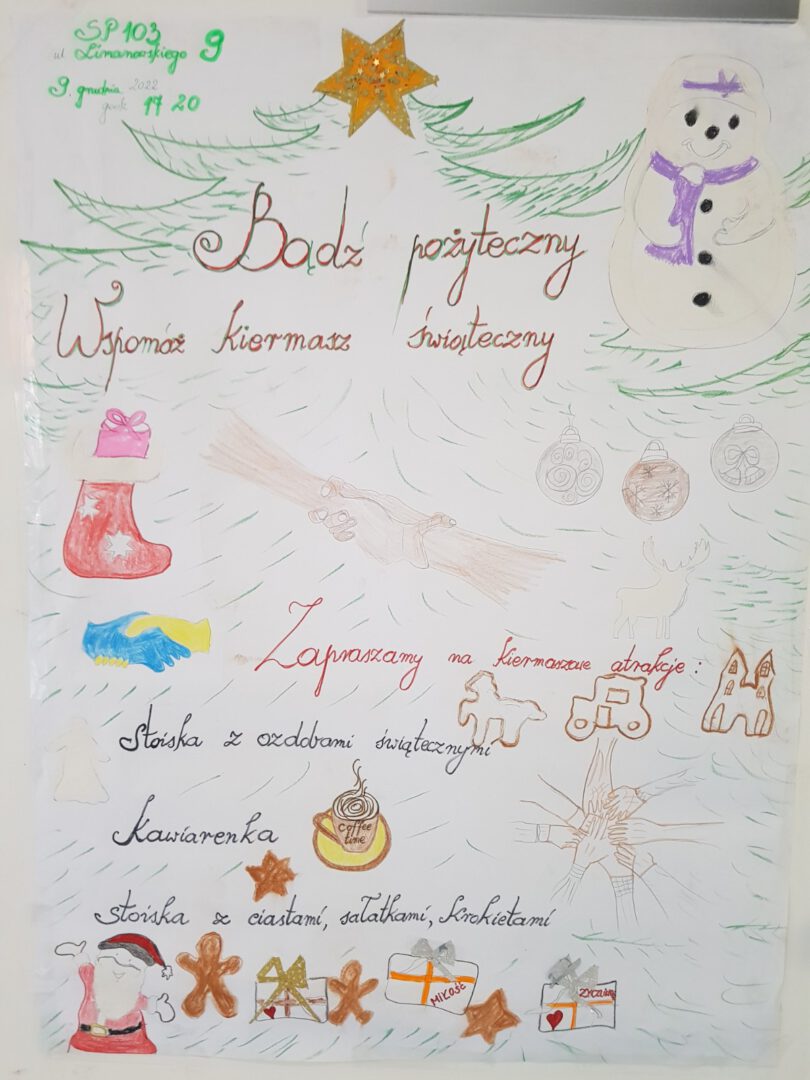 SP 103
ul Limanowskiego 9
9. grudnia 2022
godz 17 20
Bądź pożyteczny
Wspomóż kiermasz świąteczny
Zapraszamy na kiermaszowe atrakcje :
Stoiska z ozdobami świątecznymi
Kawiarenka
coffee
time
stoiska z ciastami, sałatkami, krokietami
MIŁOŚĆ